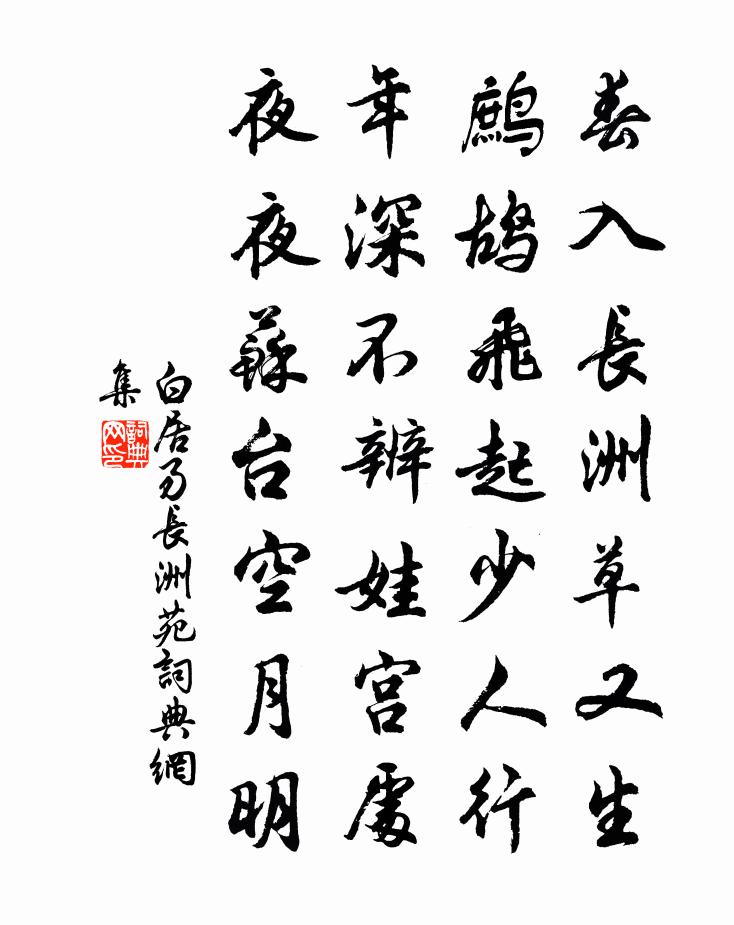 春入長洲草又生
鷓鴣飛起少人行
年深不辨娃宮處
夜夜蘇台空月明
白居易長洲苑詞典網
集
詞典
网印